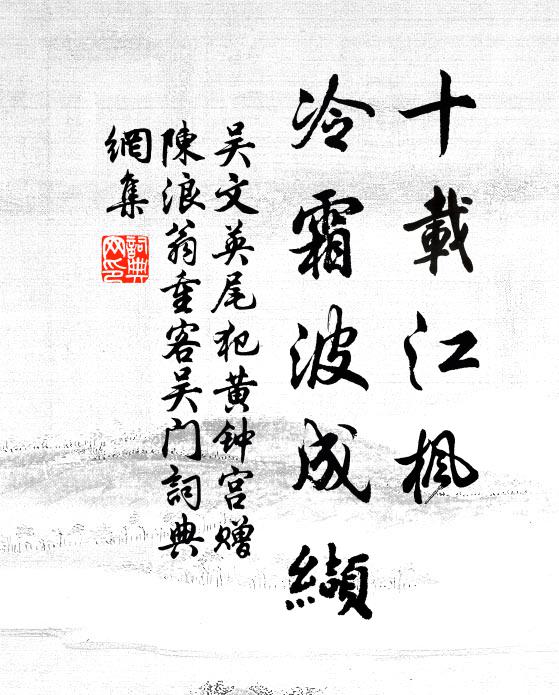 十載江楓
冷霜波成纈
吴文英尾犯黄钟宫赠
陳浪翁重客吴门詞典
網集
詞典
网印